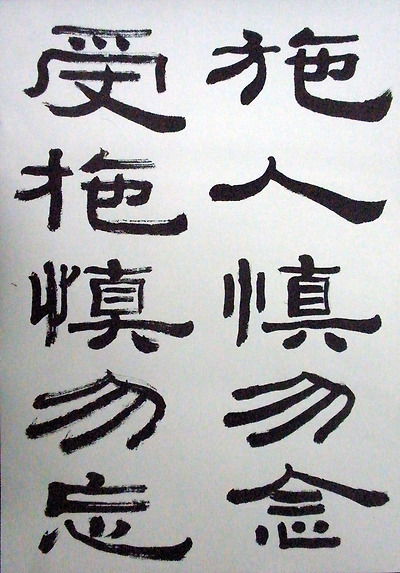 施人慎勿念
受拖慎勿忘